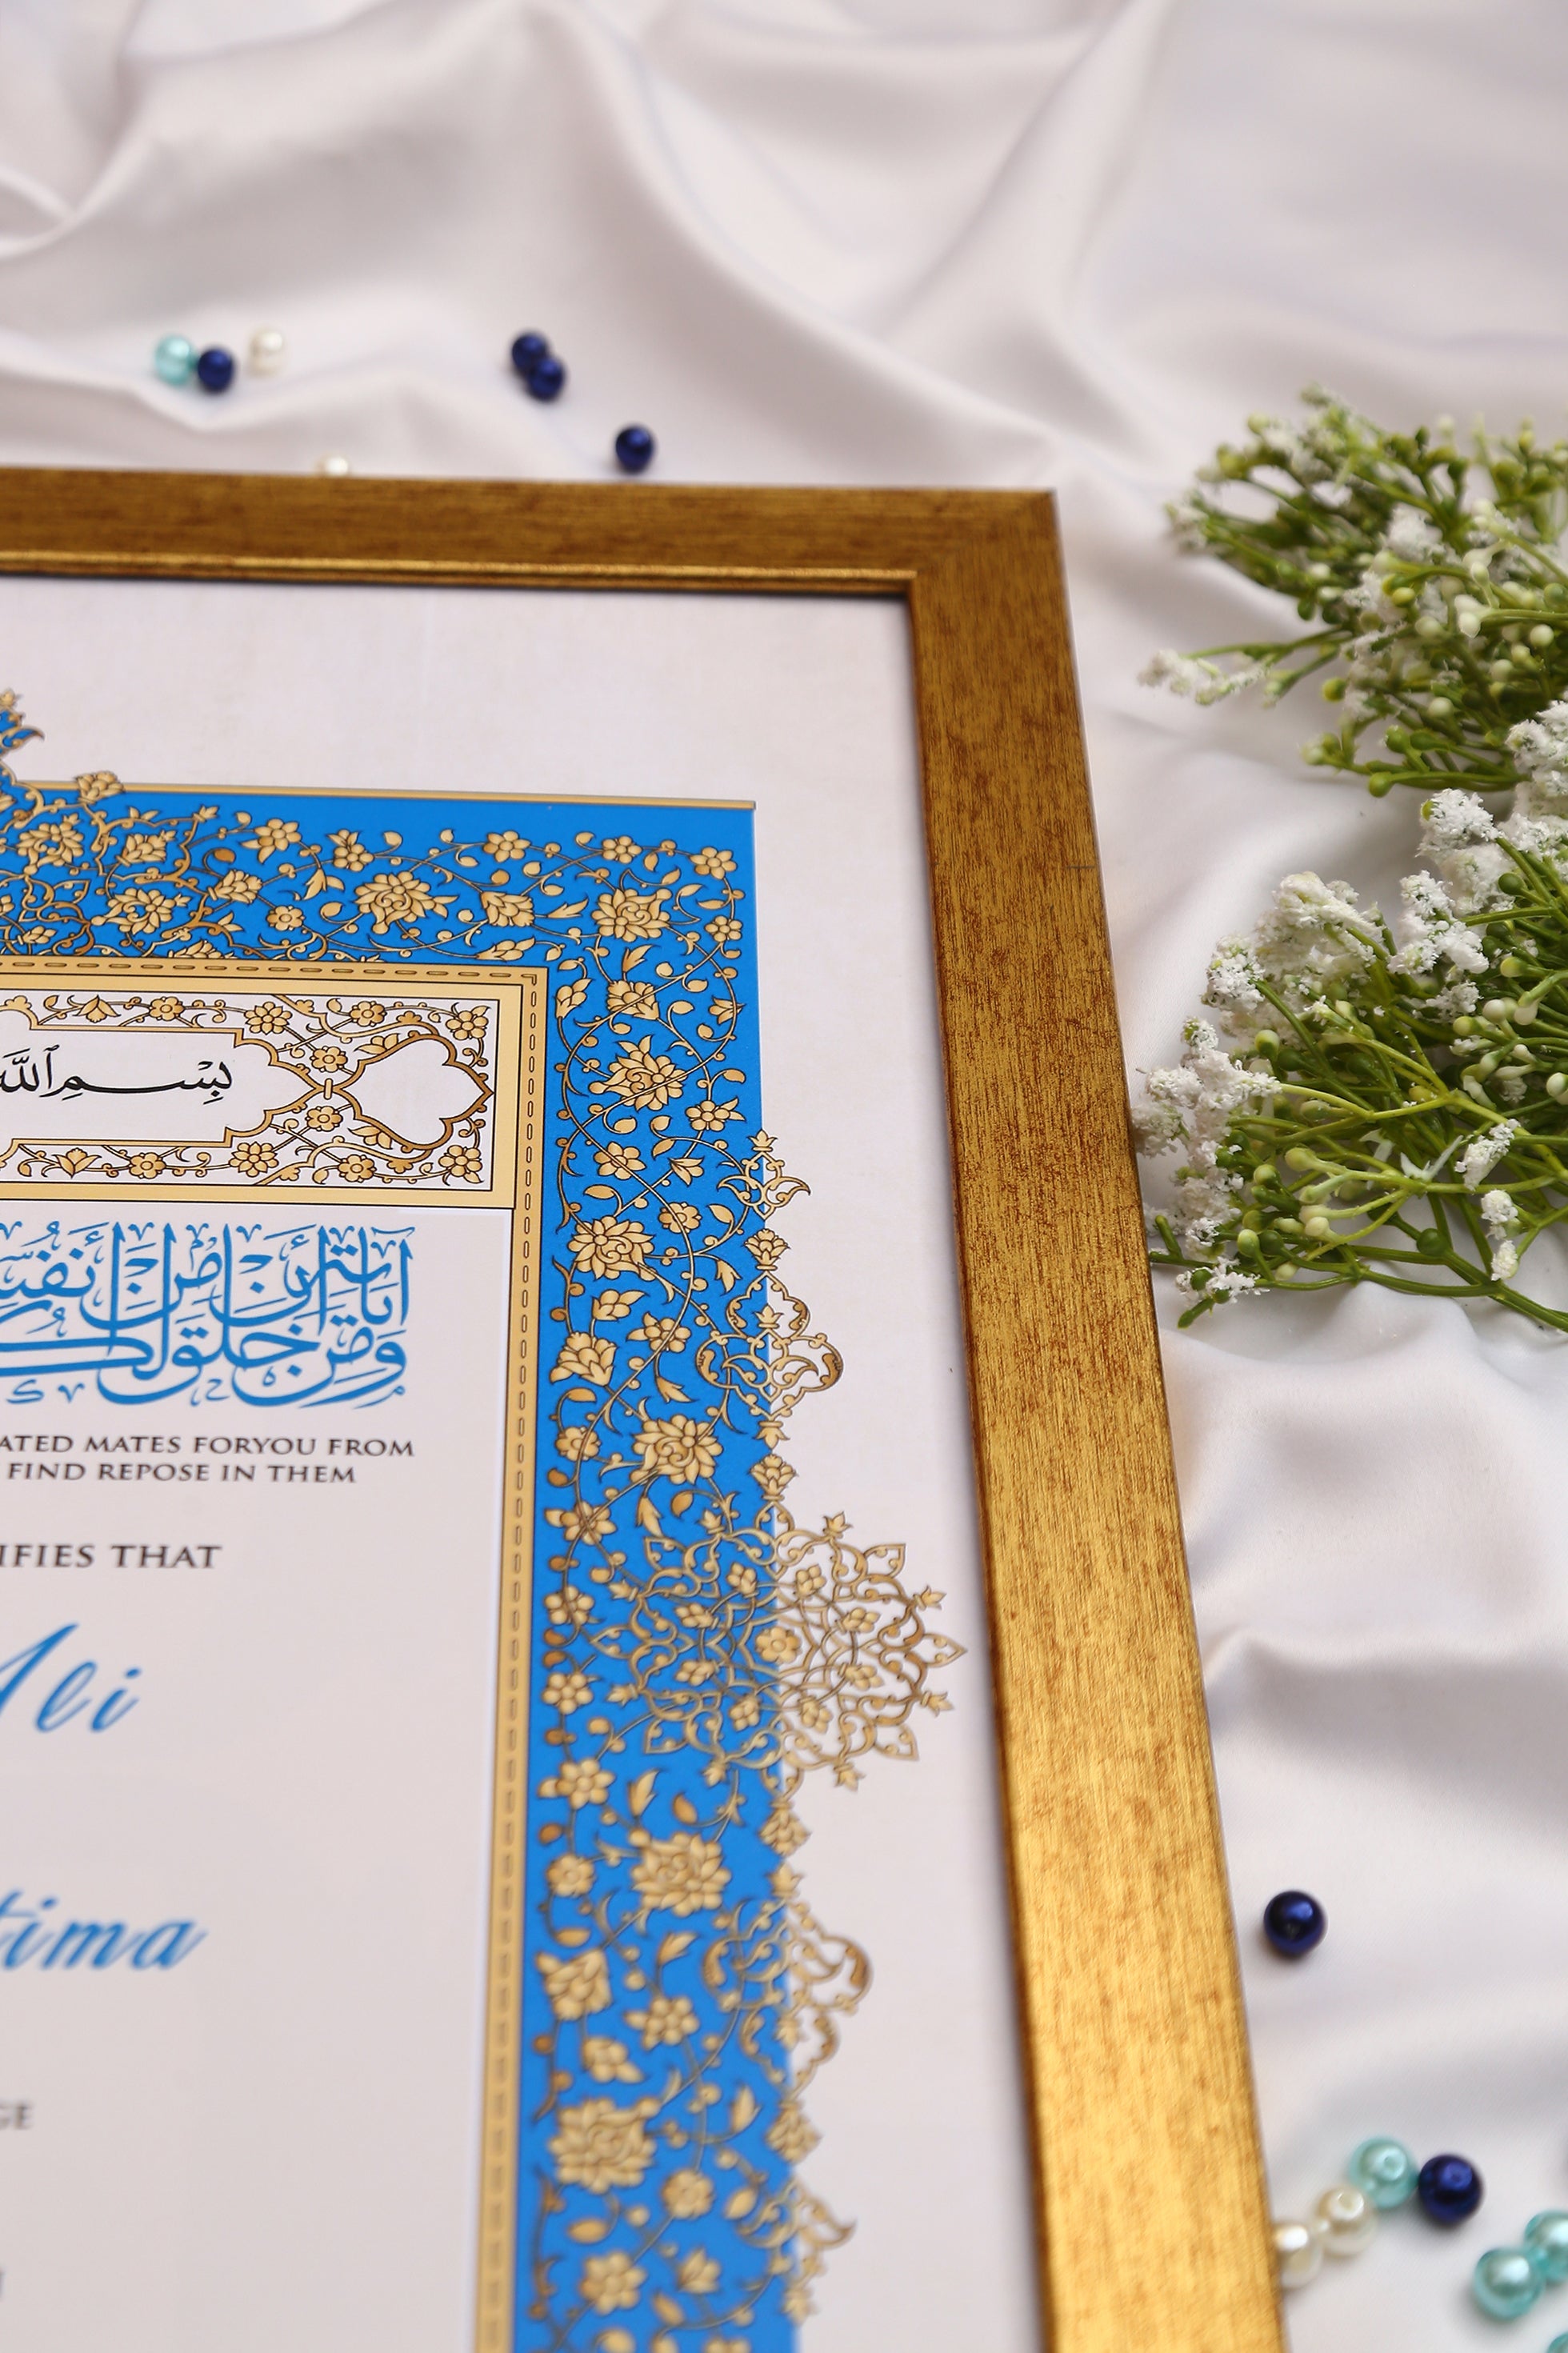 بِسْمِ ٱللَّهِ
وَمِنْ آيَاتِهِ أَنْ خَلَقَ لَكُ مِنْ أَنفُسِ
ATED MATES FORYOU FROM
FIND REPOSE IN THEM
IFIES THAT
Ali
tima
GE